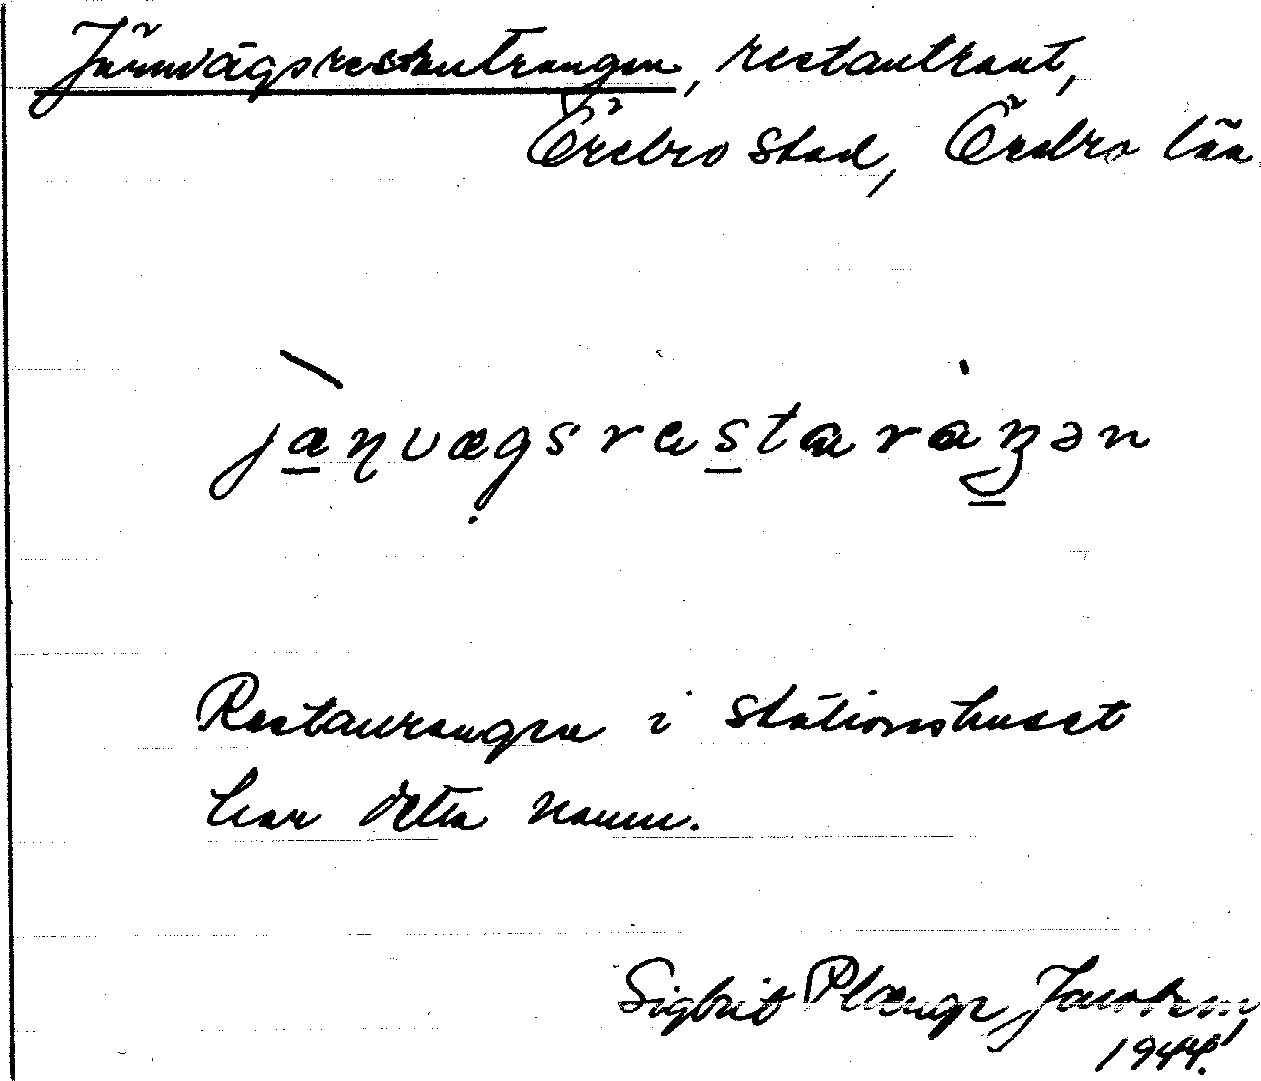 Järnvägsrestautrangen, restautrant,
Örebro stad, Örebro län
jænvægsrestaraŋən
Restaurangen i stationshuset
har detta namn.
Sigbrit Plænge Jacobson,
1944.